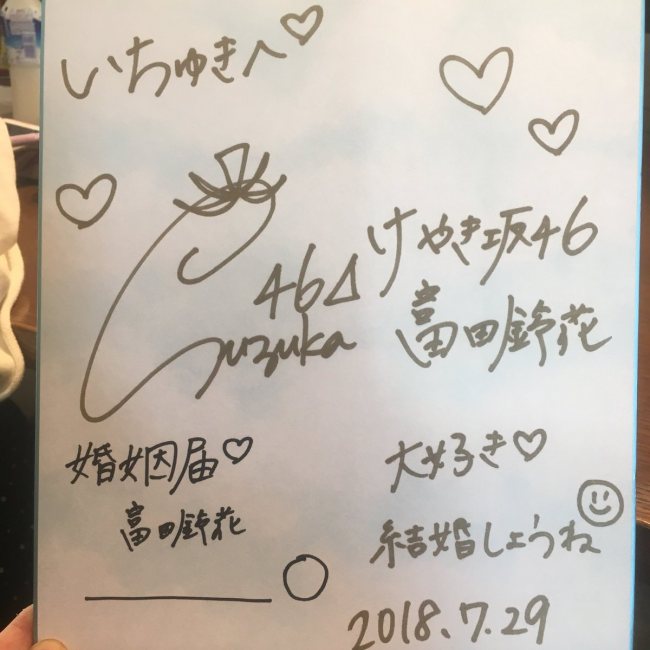 いちゆきへ♡
46⊿
Suzuka
けやき坂46
富田鈴花
婚姻届♡
富田鈴花
大好き♡
結婚しようね
2018.7.29